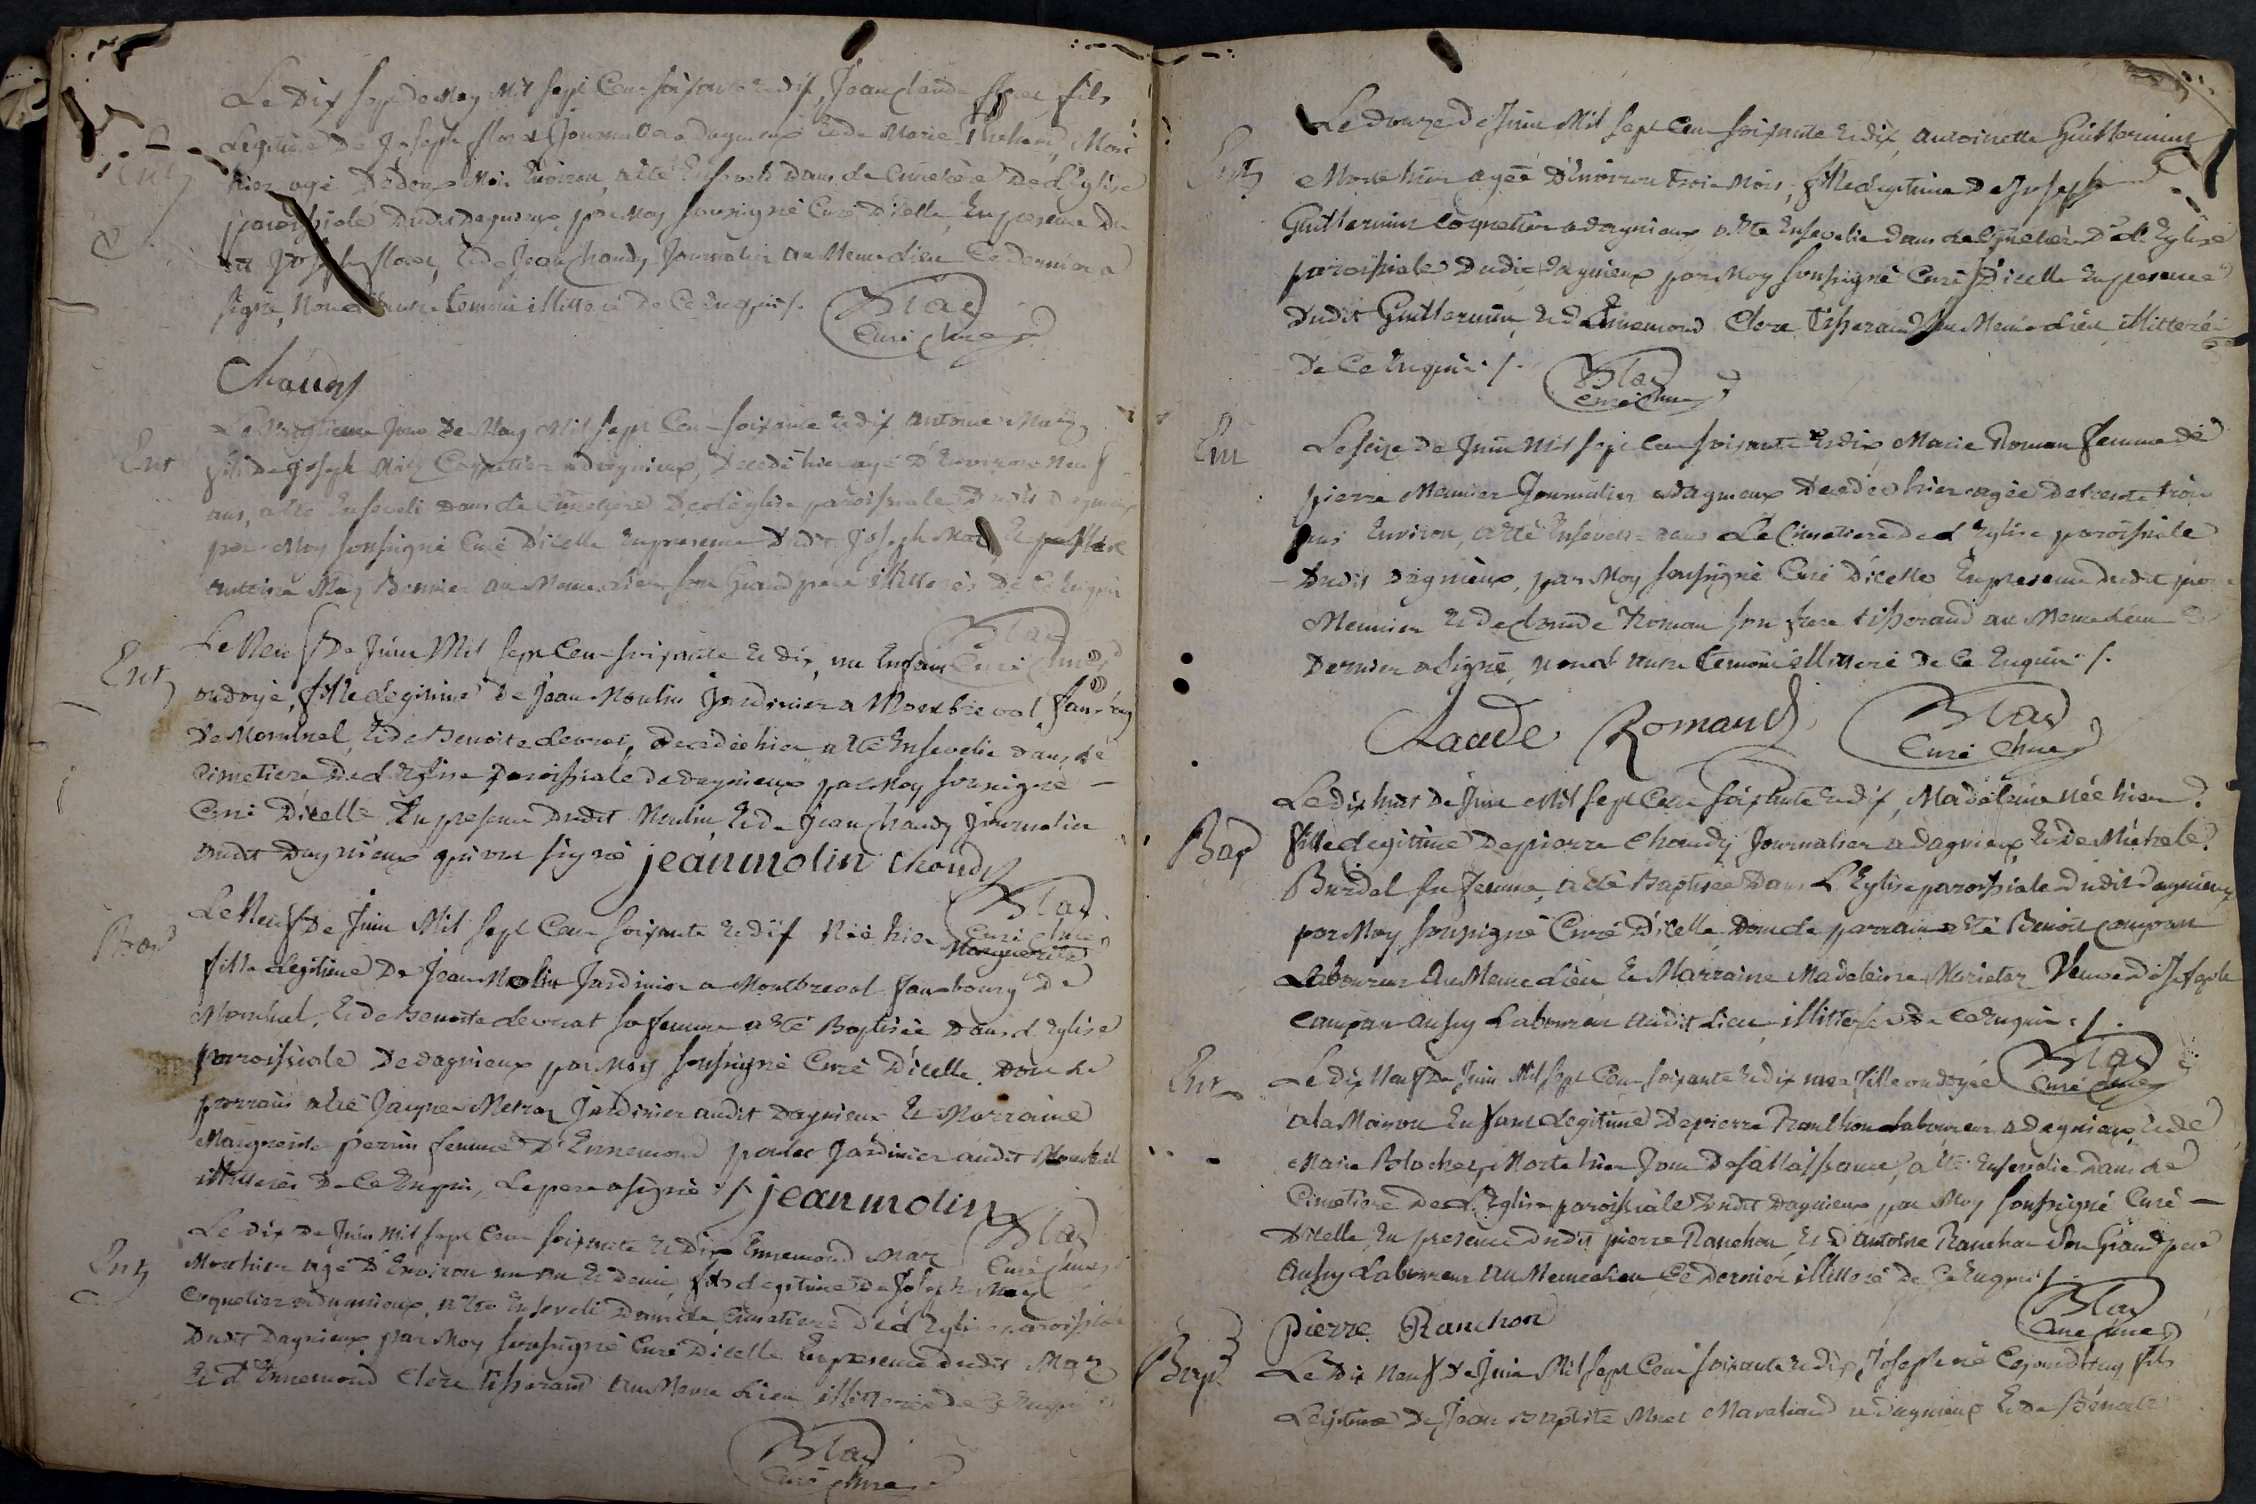 Le Dix sept de May Mil sept Cens soisante et dix, Jean Claude fils
Legitime De Joseph Journalier a Dagnieux et de Marie Mort
hier agé De deux Mois Environ, a eté Enseveli Dans Le Cimetiere De L'Eglise
paroissiale Dudit Dagnieux, par Moy soussigné Curé D'icelle, En presence Du
dit Joseph Et de Jean Chaudy Journalier au Meme Lieu Ce dernier a
signé, Non L'autre temoin illitteré De Ce Enquis /.
Blad
Curé
Chaudy
Ent
Le Jour De May Mil sept Cens soixante et dix Antoine May
fils De Joseph May Coquetier a dagnieux, Decedé hier agé D'Environ Neuf
ans, a eté Enseveli Dans Le Cimetiere De l'église paroissiale Dudit dagnieux
par Moy soussigné Curé D'icelle En presence Dudit Joseph May, Et
Antoine May au Meme Lieu, son Grand pere illitterés De Ce Enquis
Blad
Curé
Ent
Le Neuf De Juin Mil sept Cens soixante et dix, un Enfant
ondoyé, fille Legitime De Jean Moulin Jardinier a Montbreval faubourg
De Montluel, Et de Benoite Levrat, decedée hier a eté Ensevelie dans Le
Cimetiere De L'Eglise Paroissiale de dagnieux par Moy soussigné
Curé D'icelle En presence Dudit Moulin, Et de Jean Chaudy Journalier
audit Dagnieux qui ont signé jeanmolin Chaudy
Blad
Curé
Bap
Le Neuf De Juin Mil sept Cens soixante et dix Née hier Marguerite
fille Legitime De Jean Molin Jardinier a Montbreval faubourg De
Montluel, Et de Benoite Levrat sa femme a eté Baptisée Dans L'Eglise
Paroissiale De dagnieux par Moy soussigné Curé D'icelle. Dont Le
parrain a eté Jaques Metraz Jardinier audit Dagnieux Et Marraine
Marguerite perrin femme D'Ennemond Jardinier audit Montluel
illitterés De Ce Enquis, Le pere a signé /. jeanmolin
Blad
Curé
Ent
Le dix De Juin Mil sept Cens soixante Et dix Ennemond May
Mort hier agé D'Environ un an Et demi, fils Legitime De Joseph May
Coquetier a dagnieux, a eté Enseveli Dans Le Cimetiere De L'Eglise paroissiale
Dudit Dagnieux par Moy soussigné Curé D'icelle En presence dudit May
Et D'Ennemond Clere tisserand au Meme Lieu illitterés de Ce Enquis
Blad
Curé
Ent
Le douze De Juin Mil sept Cens soixante et dix, Antoinette Guillermin
Morte hier agée D'Environ trois Mois, fille Legitime De Joseph
Guillermin Coquetier a dagnieux a eté Ensevelie dans Le Cimetiere De L'Eglise
paroissiale Dudit Dagnieux par Moy soussigné Curé D'icelle En presence
Dudit Guillermin, Et d'Ennemond Clere tisserand au Meme Lieu illitterés
De Ce Enquis /.
Blad
Curé
Ent
Le seize De Juin Mil sept Cens soixante Et dix, Marie Roman femme de
pierre Meunier Journalier a dagnieux Decedée hier agée De trente trois
ans Environ, a eté Ensevelie dans Le Cimetiere De L'Eglise paroissiale
Dudit Dagnieux, par Moy soussigné Curé D'icelle En presence dudit
Meunier Et de Claude Roman son frere tisserand au Meme Lieu Ce
Dernier a signé, non L'autre temoin illitteré De Ce Enquis /.
Claude Romand
Blad
Curé
Bap
Le dix huit De Juin Mil sept Cens soixante et dix, Madeleine née hier
fille Legitime De pierre Chaudy Journalier a dagnieux, Et de Michele
Burdel sa femme, a eté Baptisée Dans L'Eglise paroissiale dudit dagnieux
par Moy soussigné Curé D'icelle, Dont Le parrain a eté Benoit
Laboureur Au Meme Lieu Et Marraine Madeleine Veuve de Joseph
aussy Laboureur audit Lieu illitterés De Ce Enquis /.
Blad
Curé
Ent
Le dix Neuf De Juin Mil sept Cens soixante et dix une fille ondoyée
a la Maison Enfant Legitime De pierre Ranchon Laboureur a dagnieux, Et de
Marie Morte hier Jour De sa Naissance, a eté Ensevelie Dans Le
Cimetiere De L'Eglise paroissiale Dudit Dagnieux par Moy soussigné Curé
D'icelle, En presence dudit pierre Ranchon, Et d'antoine Ranchon son Grand pere
Aussy Laboureur Au Meme Lieu Ce Dernier illitteré De Ce Enquis /.
Blad
Curé
pierre Ranchon
Bap
Le Dix Neuf De Juin Mil sept Cens soixante Et dix, Joseph né fils
Legitime De Jean Baptiste a dagnieux Et de Benoite